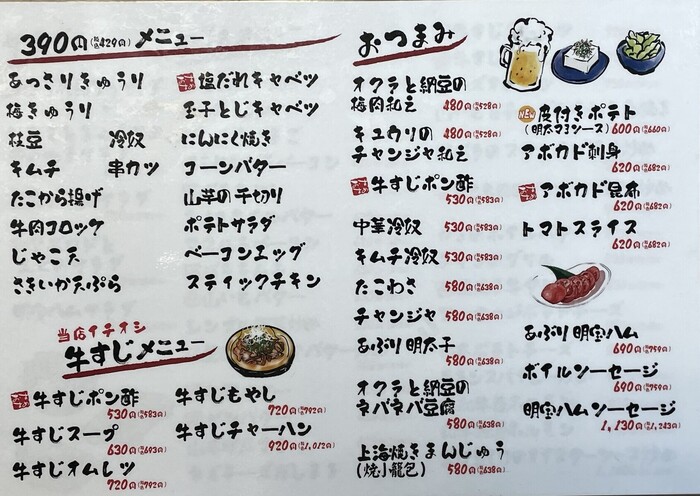 390円(税込429円)メニュー
あっさりきゅうり
塩だれキャベツ
梅きゅうり
玉子とじキャベツ
枝豆 冷奴
にんにく焼き
キムチ 串カツ
コーンバター
たこから揚げ
山芋の千切り
牛肉コロッケ
ポテトサラダ
じゃこ天
ベーコンエッグ
さきいか天ぷら
スティックチキン
当店イチオシ
牛すじメニュー
牛すじポン酢
530円(税込583円)
牛すじスープ
630円(税込693円)
牛すじオムレツ
720円(税込792円)
牛すじもやし
720円(税込792円)
牛すじチャーハン
920円(税込1,012円)
おつまみ
オクラと納豆の
梅肉和え 480円(税込528円)
キュウリの 480円(税込528円)
チャンジャ和え
牛すじポン酢
530円(税込583円)
中華冷奴 530円(税込583円)
キムチ冷奴 530円(税込583円)
たこわさ 580円(税込638円)
チャンジャ 580円(税込638円)
あぶり明太子
580円(税込638円)
オクラと納豆の
ネバネバ豆腐
580円(税込638円)
上海焼きまんじゅう
(焼小籠包) 580円(税込638円)
NEW 皮付きポテト
(明太マヨソース) 600円(税込660円)
アボカド刺身
620円(税込682円)
アボカド昆布
620円(税込682円)
トマトスライス
620円(税込682円)
あぶり明宝ハム
690円(税込759円)
ボイルソーセージ
690円(税込759円)
明宝ハムソーセージ
1,130円(税込1,243円)